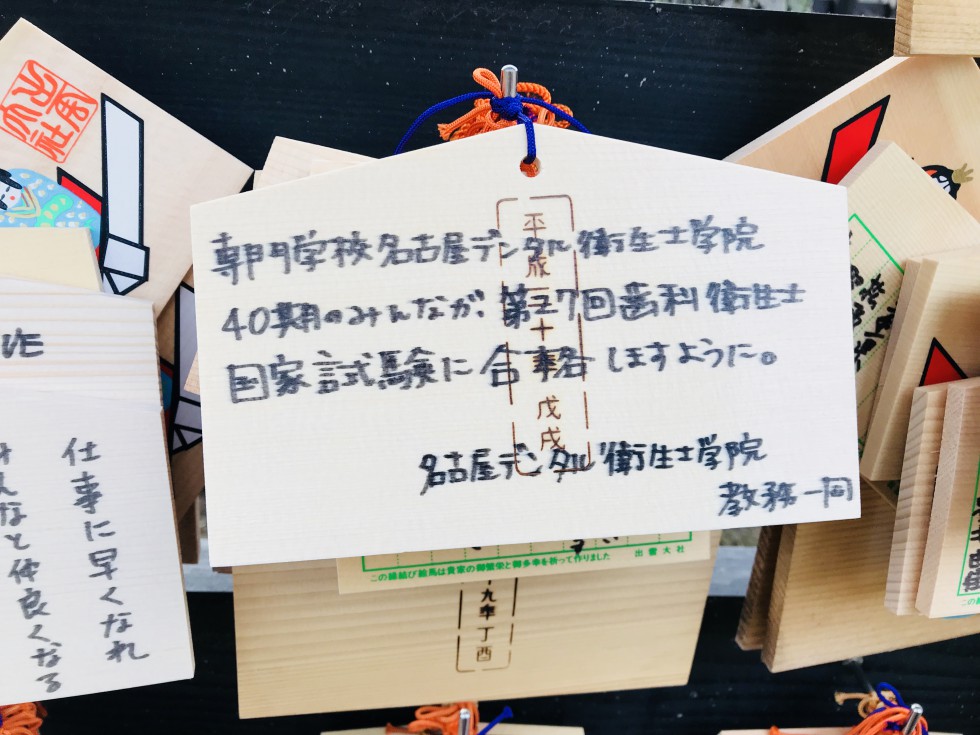 専門学校名古屋デンタル衛生士学院
40期のみんなが、第27回歯科衛生士
国家試験に合格しますように。
名古屋デンタル衛生士学院
教務一同
平成三十年 戊戌
この縁結び絵馬は貴家の御繁栄と御多幸を祈って作りました 出雲大社
九年丁酉
VE
仕事に早くなれ
みんなと仲良くなる